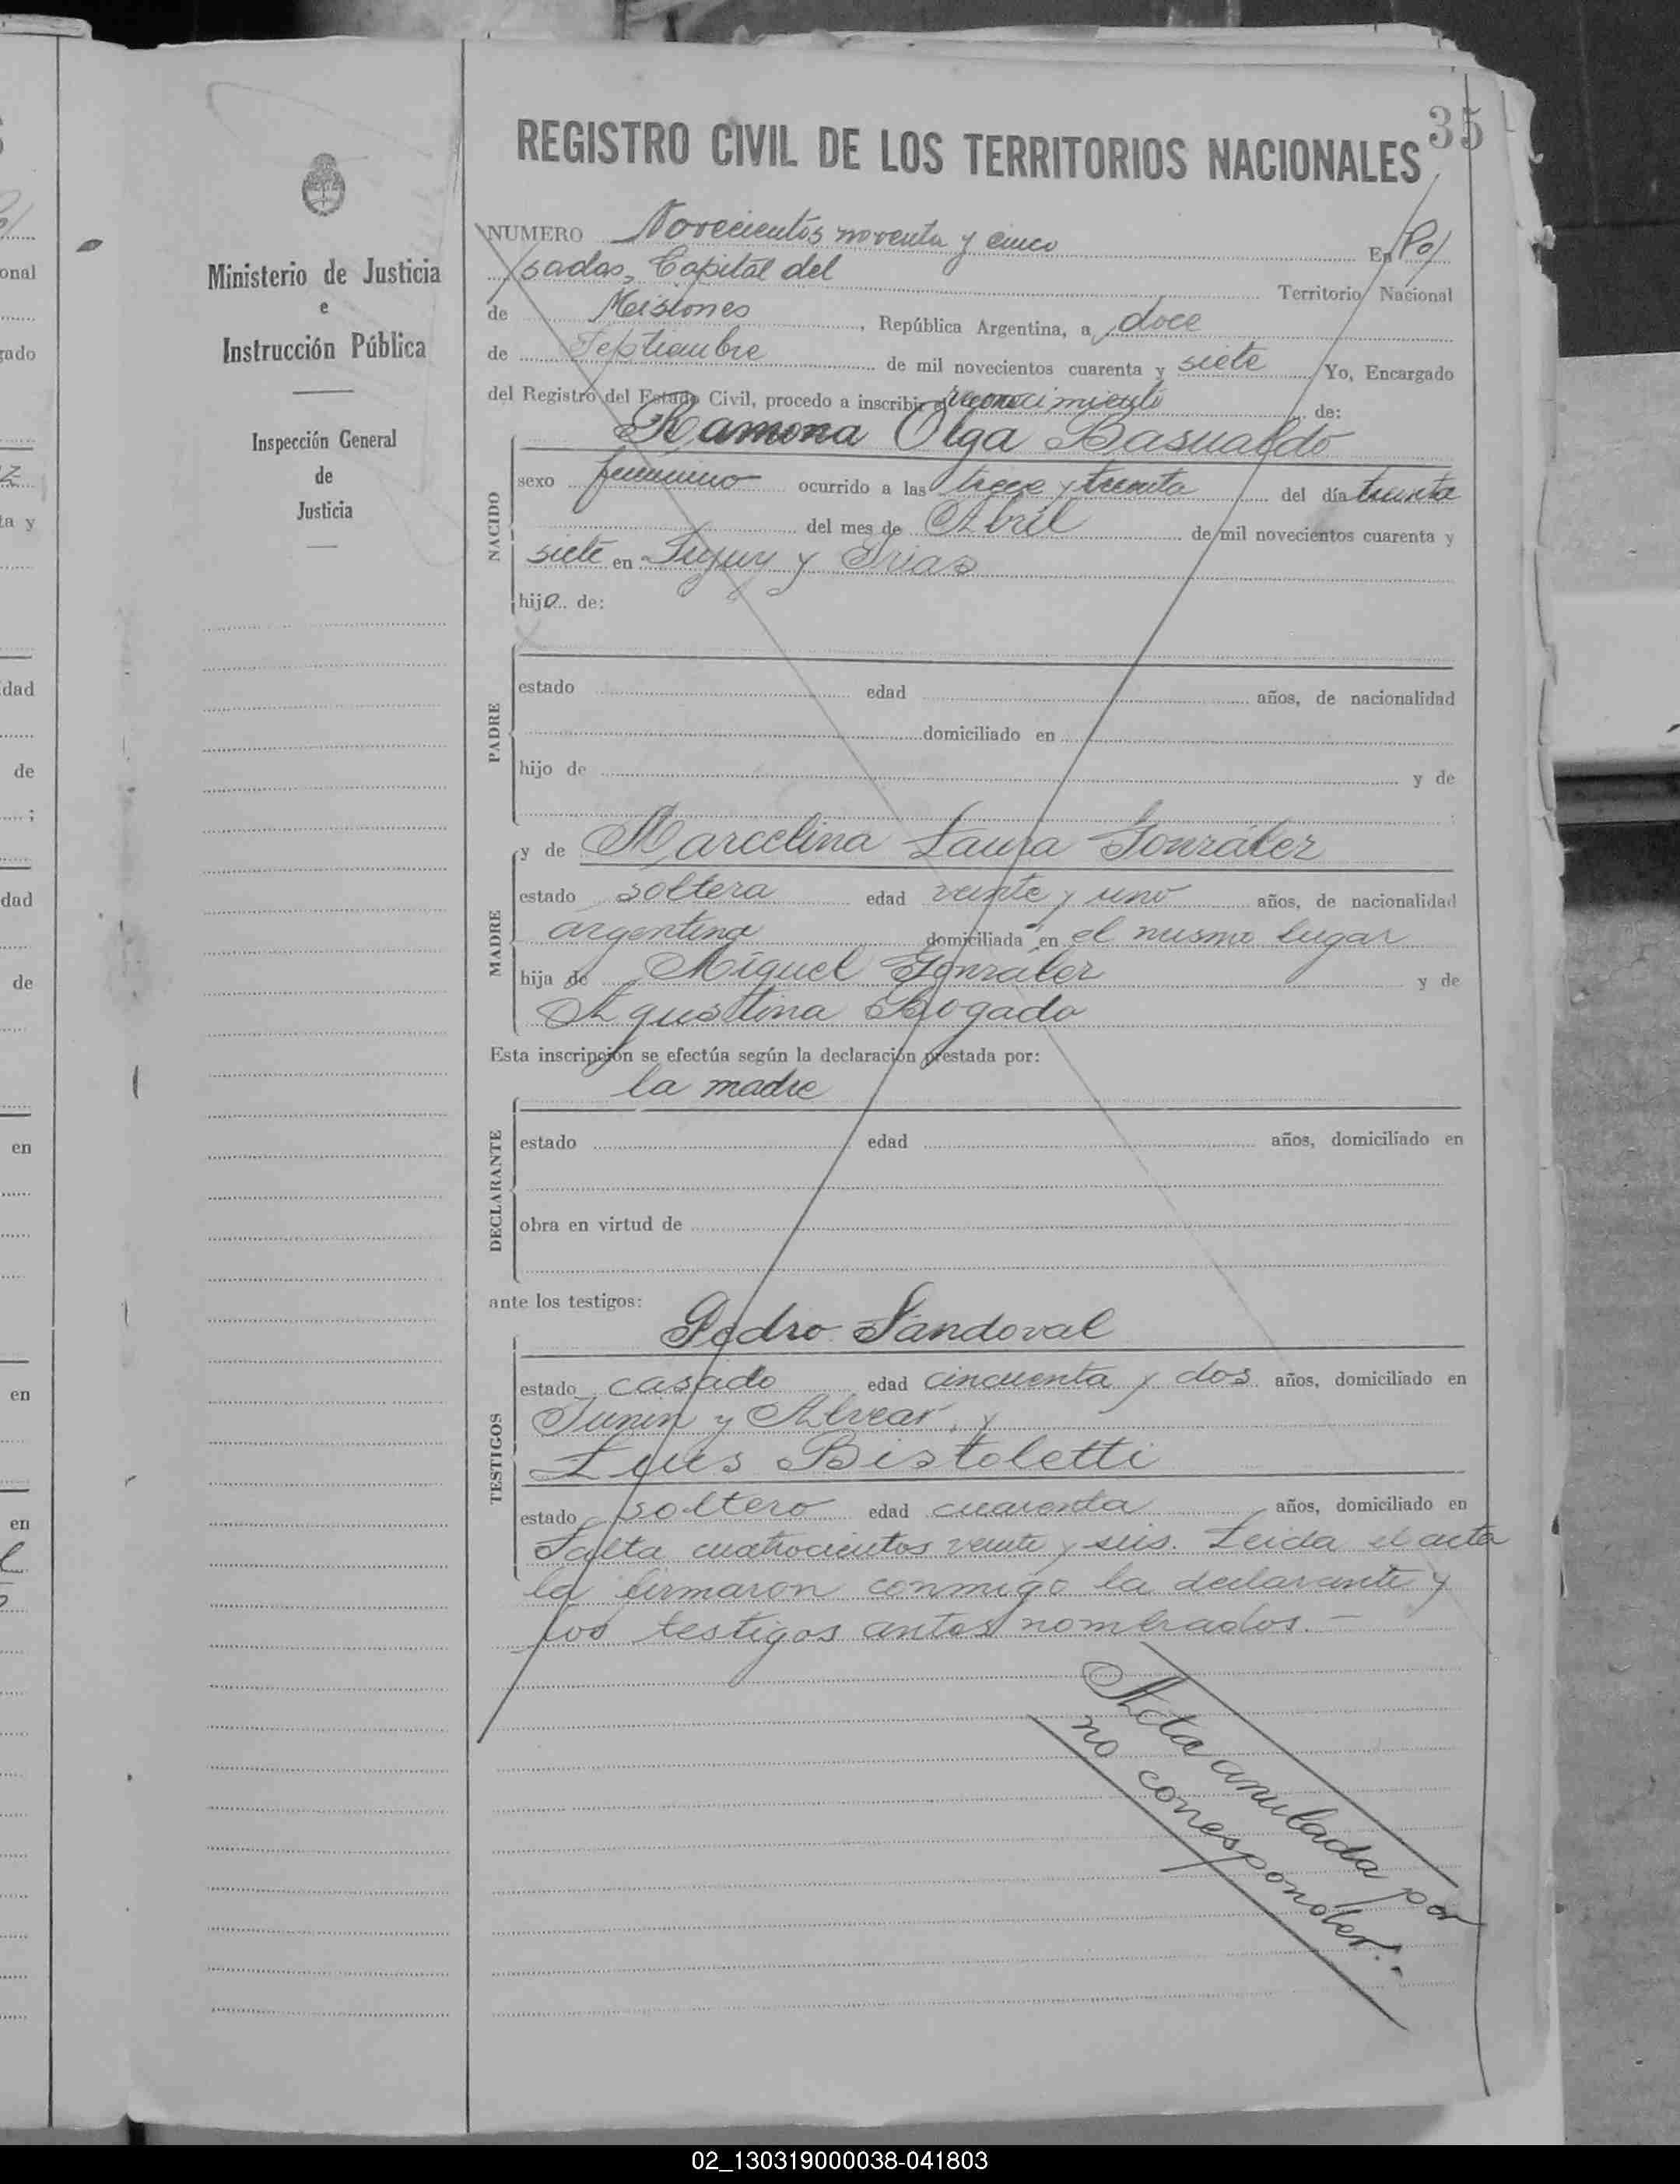 35
REGISTRO CIVIL DE LOS TERRITORIOS NACIONALES
Ministerio de Justicia
e
Instrucción Pública
Inspección General
de
Justicia
NUMERO Novecientos noventa y cinco En Po/
sadas, Capital del Territorio Nacional
de Misiones, República Argentina, a doce
de Septiembre de mil novecientos cuarenta y siete Yo, Encargado
del Registro del Estado Civil, procedo a inscribir el reconocimiento de:
Ramona Olga Basualdo
NACIDO
sexo femenino ocurrido a las trece y treinta del día treinta
del mes de Abril de mil novecientos cuarenta y
siete en Jujuy y Frias
hija de:
PADRE
estado edad años, de nacionalidad
domiciliado en
hijo de y de
y de Marcelina Laura González
MADRE
estado soltera edad veinte y uno años, de nacionalidad
argentina domiciliada en el mismo lugar
hija de Miguel González y de
Agustina Bogado
Esta inscripción se efectúa según la declaración prestada por:
la madre
DECLARANTE
estado edad años, domiciliado en
obra en virtud de
ante los testigos:
Pedro Sandoval
TESTIGOS
estado casado edad cincuenta y dos años, domiciliado en
Junin y Alvear, y
Luis Bistoletti
estado soltero edad cuarenta años, domiciliado en
Salta cuatrocientos veinte y seis. Leida el acta
la firmaron conmigo la declarante y
los testigos antes nombrados.—
Acta anulada por
no corresponder.-
02_130319000038-041803